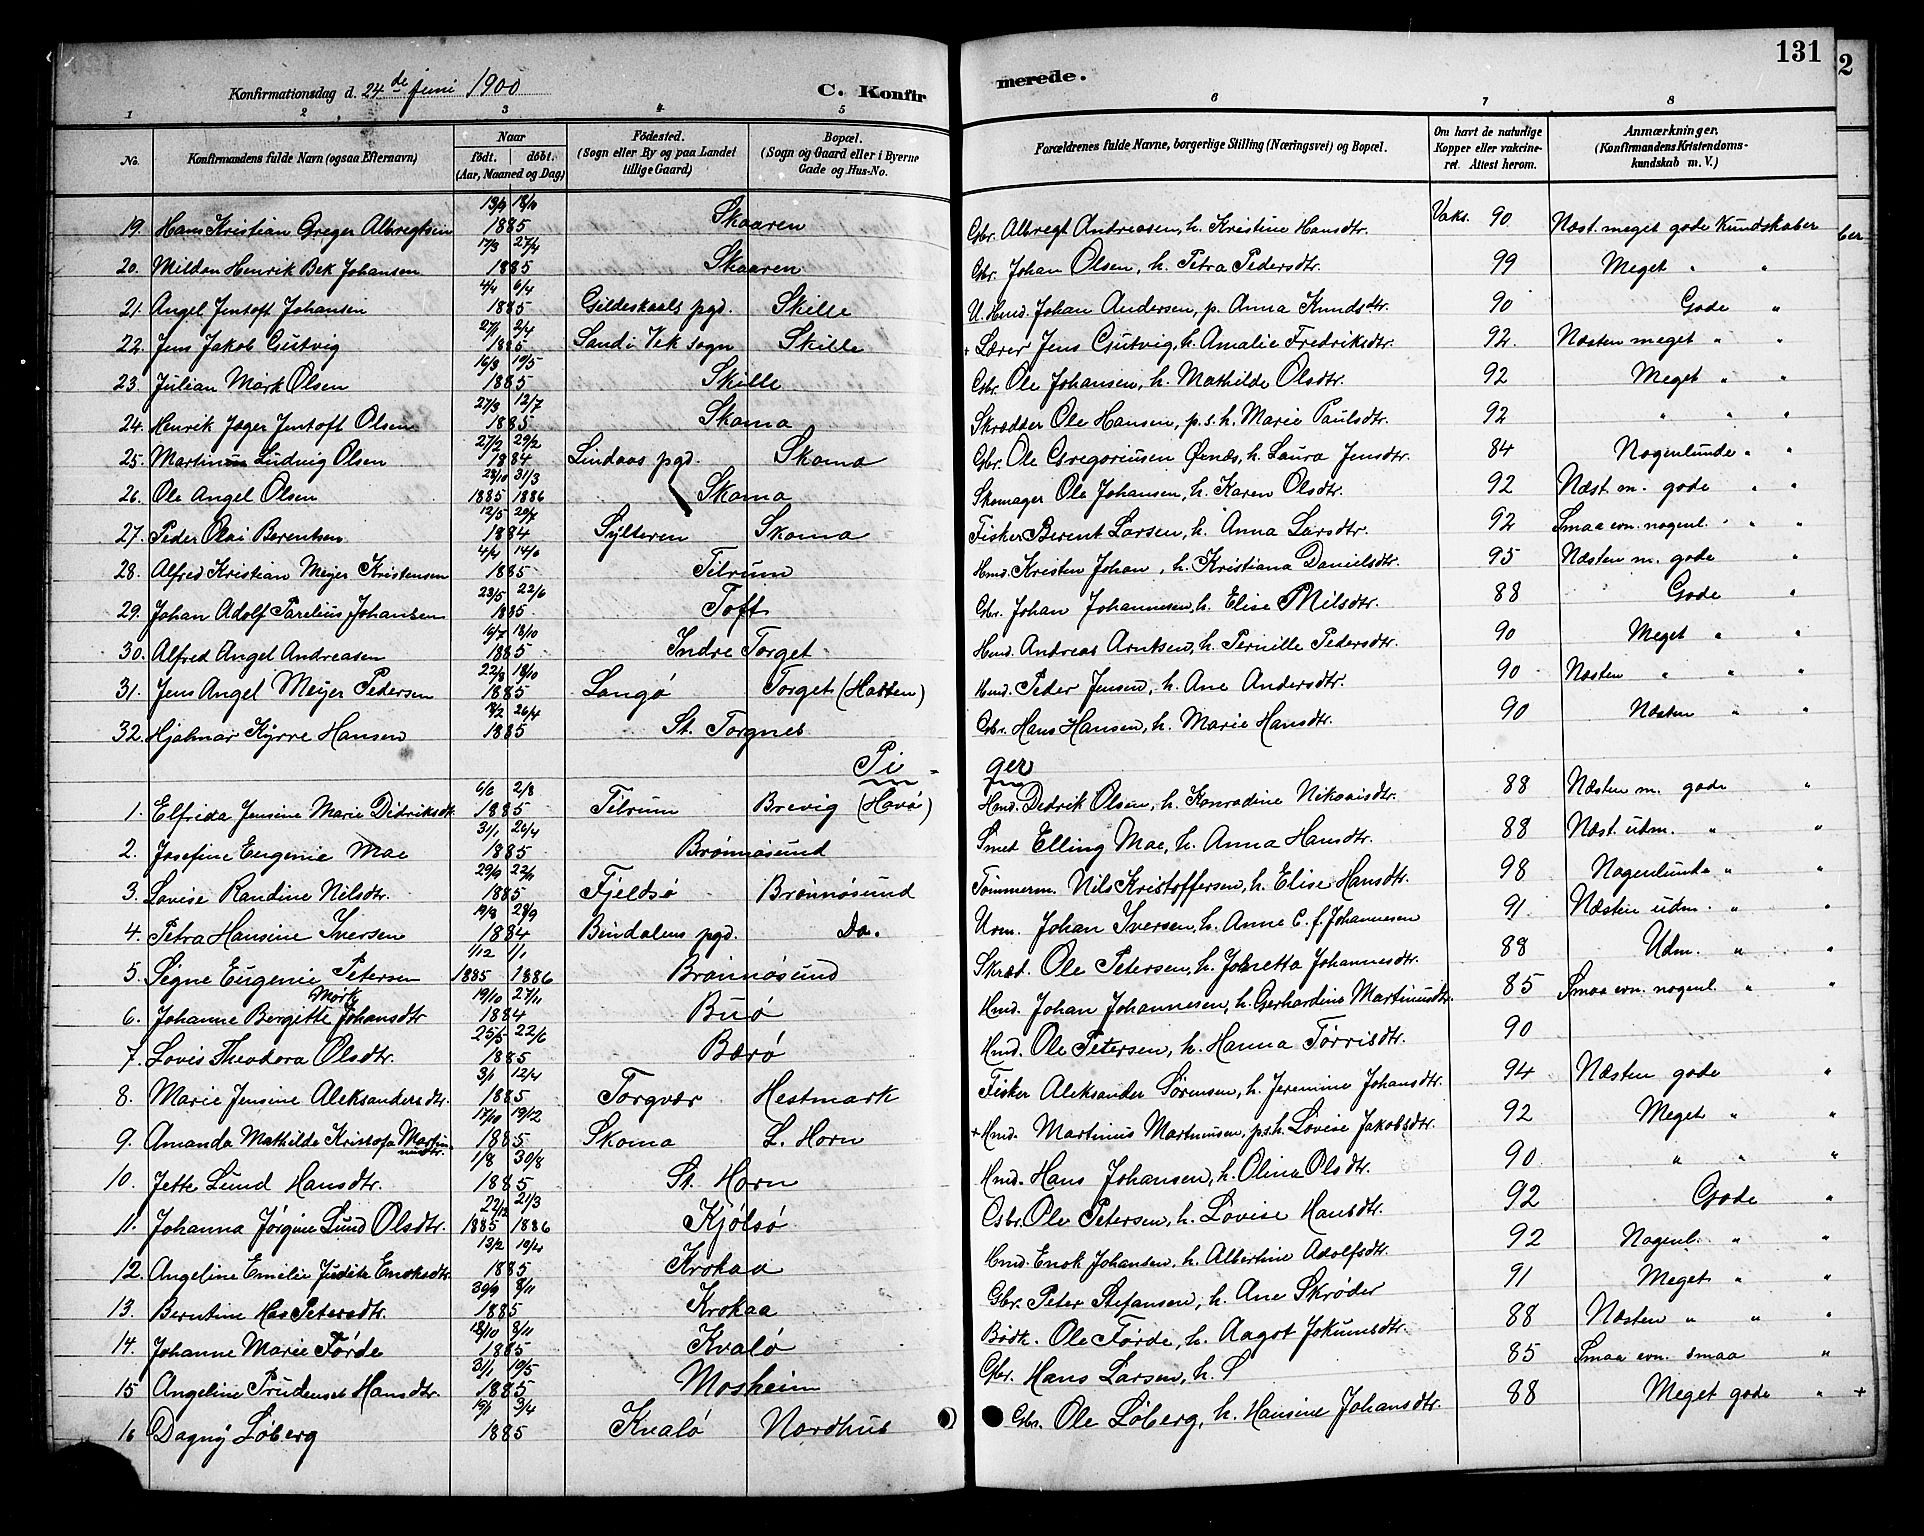 131
2
Konfirmationsdag d. 24de Juni 1900
C. Konfirmerede.
1 2 3 4 5 6 7 8
No.
Konfirmandens fulde Navn (ogsaa Efternavn)
Naar født. døbt. (Aar, Maaned og Dag)
Fødested. (Sogn eller By og paa Landet tillige Gaard)
Bopæl. (Sogn og Gaard eller i Byerne Gade og Hus-No.
Forældrenes fulde Navne, borgerlige Stilling (Næringsvei) og Bopæl.
Om havt de naturlige Kopper eller vakcineret. Attest herom.
Anmærkninger. (Konfirmandens Kristendomskundskab m. V.)
19. Hans Kristian Greger Albregtsen 13/9 18/10 1885 Skaaren Gbr. Albregt Andreasen, h. Kristine Hansdtr. Vaks. 90 Næst. meget gode Kundskaber
20. Mildan Henrik Bek Johansen 17/3 27/4 1885 Skaaren Gbr. Johan Olsen, h. Petra Pedersdtr. 99 Meget " "
21. Angel Jentoft Johansen 4/4 6/4 1885 Gildeskaals pgd. Skille U. Hmd. Johan Andersen, p. Anna Knudsdtr. 90 Gode "
22. Jens Jakob Gutvig 27/1 2/4 1885 Sandi Vek sogn Skille + Lærer Jens Gutvig, h. Amalie Fredriksdtr. 92. Næsten meget " "
23. Julian Mørk Olsen 16/3 19/5 1885 Skille Gbr. Ole Johansen, h. Mathilde Olsdtr. 92 Meget " "
24. Henrik Jæger Jentoft Olsen 27/3 12/7 1885 Skomo Skrædder Ole Hansen, p.s.h. Marie Paulsdtr. 92 " " "
25. Martinus Ludvig Olsen 27/2 29/2 1884 Lindaas pgd. Skomo Gbr. Ole Gregoriusen Øenæs, h. Laura Jensdtr. 84 Nogenlunde " "
26. Ole Angel Olsen 28/10 31/3 1885 1886 Skomo Skomager Ole Johansen, h. Karen Olsdtr. 92 Næst. m. gode " "
27. Peder Olai Berentsen 12/5 20/7 1884 Sylteren Skomo Fisker Berent Larsen, h. Anna Larsdtr. 92 Smaa evn. nogenl. " "
28. Alfred Kristian Meyer Kristensen 1885 Tilrum Hmd. Kristen Johan , h. Kristiana Danielsdtr. 95 Næsten m. gode "
29. Johan Adolf Parelius Johansen 23/5 22/6 1885 Toft Gbr. Johan Johannesen, h. Elise Nilsdtr. 88 Gode "
30. Alfred Angel Andreasen 16/7 18/10 1885 Indre Torget Hmd. Andreas Arntsen, h. Pernille Pedersdtr. 90 Meget " "
31. Jens Angel Meyer Pedersen 22/8 18/10 1885 Langø Torget (Hatten) Hmd. Peder Jensen, h. Ane Andersdtr. 90 Næsten " " "
32. Hjalmar Kyrre Hansen 26/4 1885 St. Torgnes Gbr. Hans Hansen, h. Marie Hansdtr. 90 Næsten " "
Piger
1. Elfrida Jensine Marie Didriksdtr. 6/6 2/8 1885 Tilrum Brevig (Havø) Hmd. Didrik Olsen, h. Konradine Nikolaisdtr. 88 Næsten m. gode "
2. Josefine Eugenie Moe 31/1 26/4 1885 Brønnøsund Smed Elling Moe, h. Anna Hansdtr. 88 Næst. udm. " "
3. Lovise Randine Nilsdtr. 29/9 22/11 1885 Fjeldsø Brønnøsund Tømmerm. Nils Kristoffersen, h. Elise Hansdtr. 98 Nogenlunde " "
4. Petra Hansine Iversen 19/8 28/9 1884 Bindalens pgd. Do. Urm. Johan Iversen, h. Anne C. f. Johannesen 91 Næsten udm. " "
5. Signe Eugenie Petersen 1/12 1/1 1885 1886 Brønnøsund Skræd. Ole Petersen, h. Johretta Johannesdtr. 88 Udm. " "
6. Johanne Bergitte Mørk Johansdtr 19/10 27/11 1884 Buø Hmd. Johan Johannesen, h. Gerhardine Martinusdtr. 85 Smaa evn. nogenl. " "
7. Lovis Theodora Olsdtr. 25/5 22/6 1885 Bærø Hmd. Ole Petersen, h. Hanna Tørrisdtr. 90
8. Marie Jensine Aleksandersdtr. 3/1 12/4 1885 Torgvær Hestmark Fisker Aleksander Sørensen, h. Jeremine Johansdtr. 94 Næsten gode "
9. Amanda Mathilde Kristofa Martinusdtr. 17/10 19/12 1885 Skomo L. Horn + Hmd. Martinus Martinusen, p.s.h. Lovise Jakobsdtr. 92 Meget " "
10. Jette Lund Hansdtr. 1/8 30/8 1885 St. Horn Hmd. Hans Johansen, h. Olina Olsdtr. 90 " " "
11. Johanna Jørgine Lund Olsdtr. 22/12 21/3 1885 1886 Kjølsø Gbr. Ole Petersen, h. Lovise Hansdtr. 92 Gode "
12. Angeline Emilie Judite Enoksdtr. 13/2 1885 Krokaa Hmd. Enok Johansen, h. Albertine Adolfsdtr. 92 Nogenl. " "
13. Berntine Has Petersdtr. 30/9 8/11 1885 Krokaa Gbr. Peter Stefansen, h. Ane Skrøder 91 Meget " "
14. Johanne Marie Førde 18/10 8/11 1885 Kvalø Bødk. Ole Førde, h. Aagot Jokumsdtr. 88 Næsten " " "
15 Angeline Prudense Hansdtr. 31/1 19/5 1885 Mosheim Gbr. Hans Larsen, h. S 85 Smaa evn. smaa "
16 Dagny Løberg 19/1 3/4 1885 Kvalø Nordhus Gbr. Ole Løberg, h. Hansine Johansdtr. 88 Meget gode " +
ber